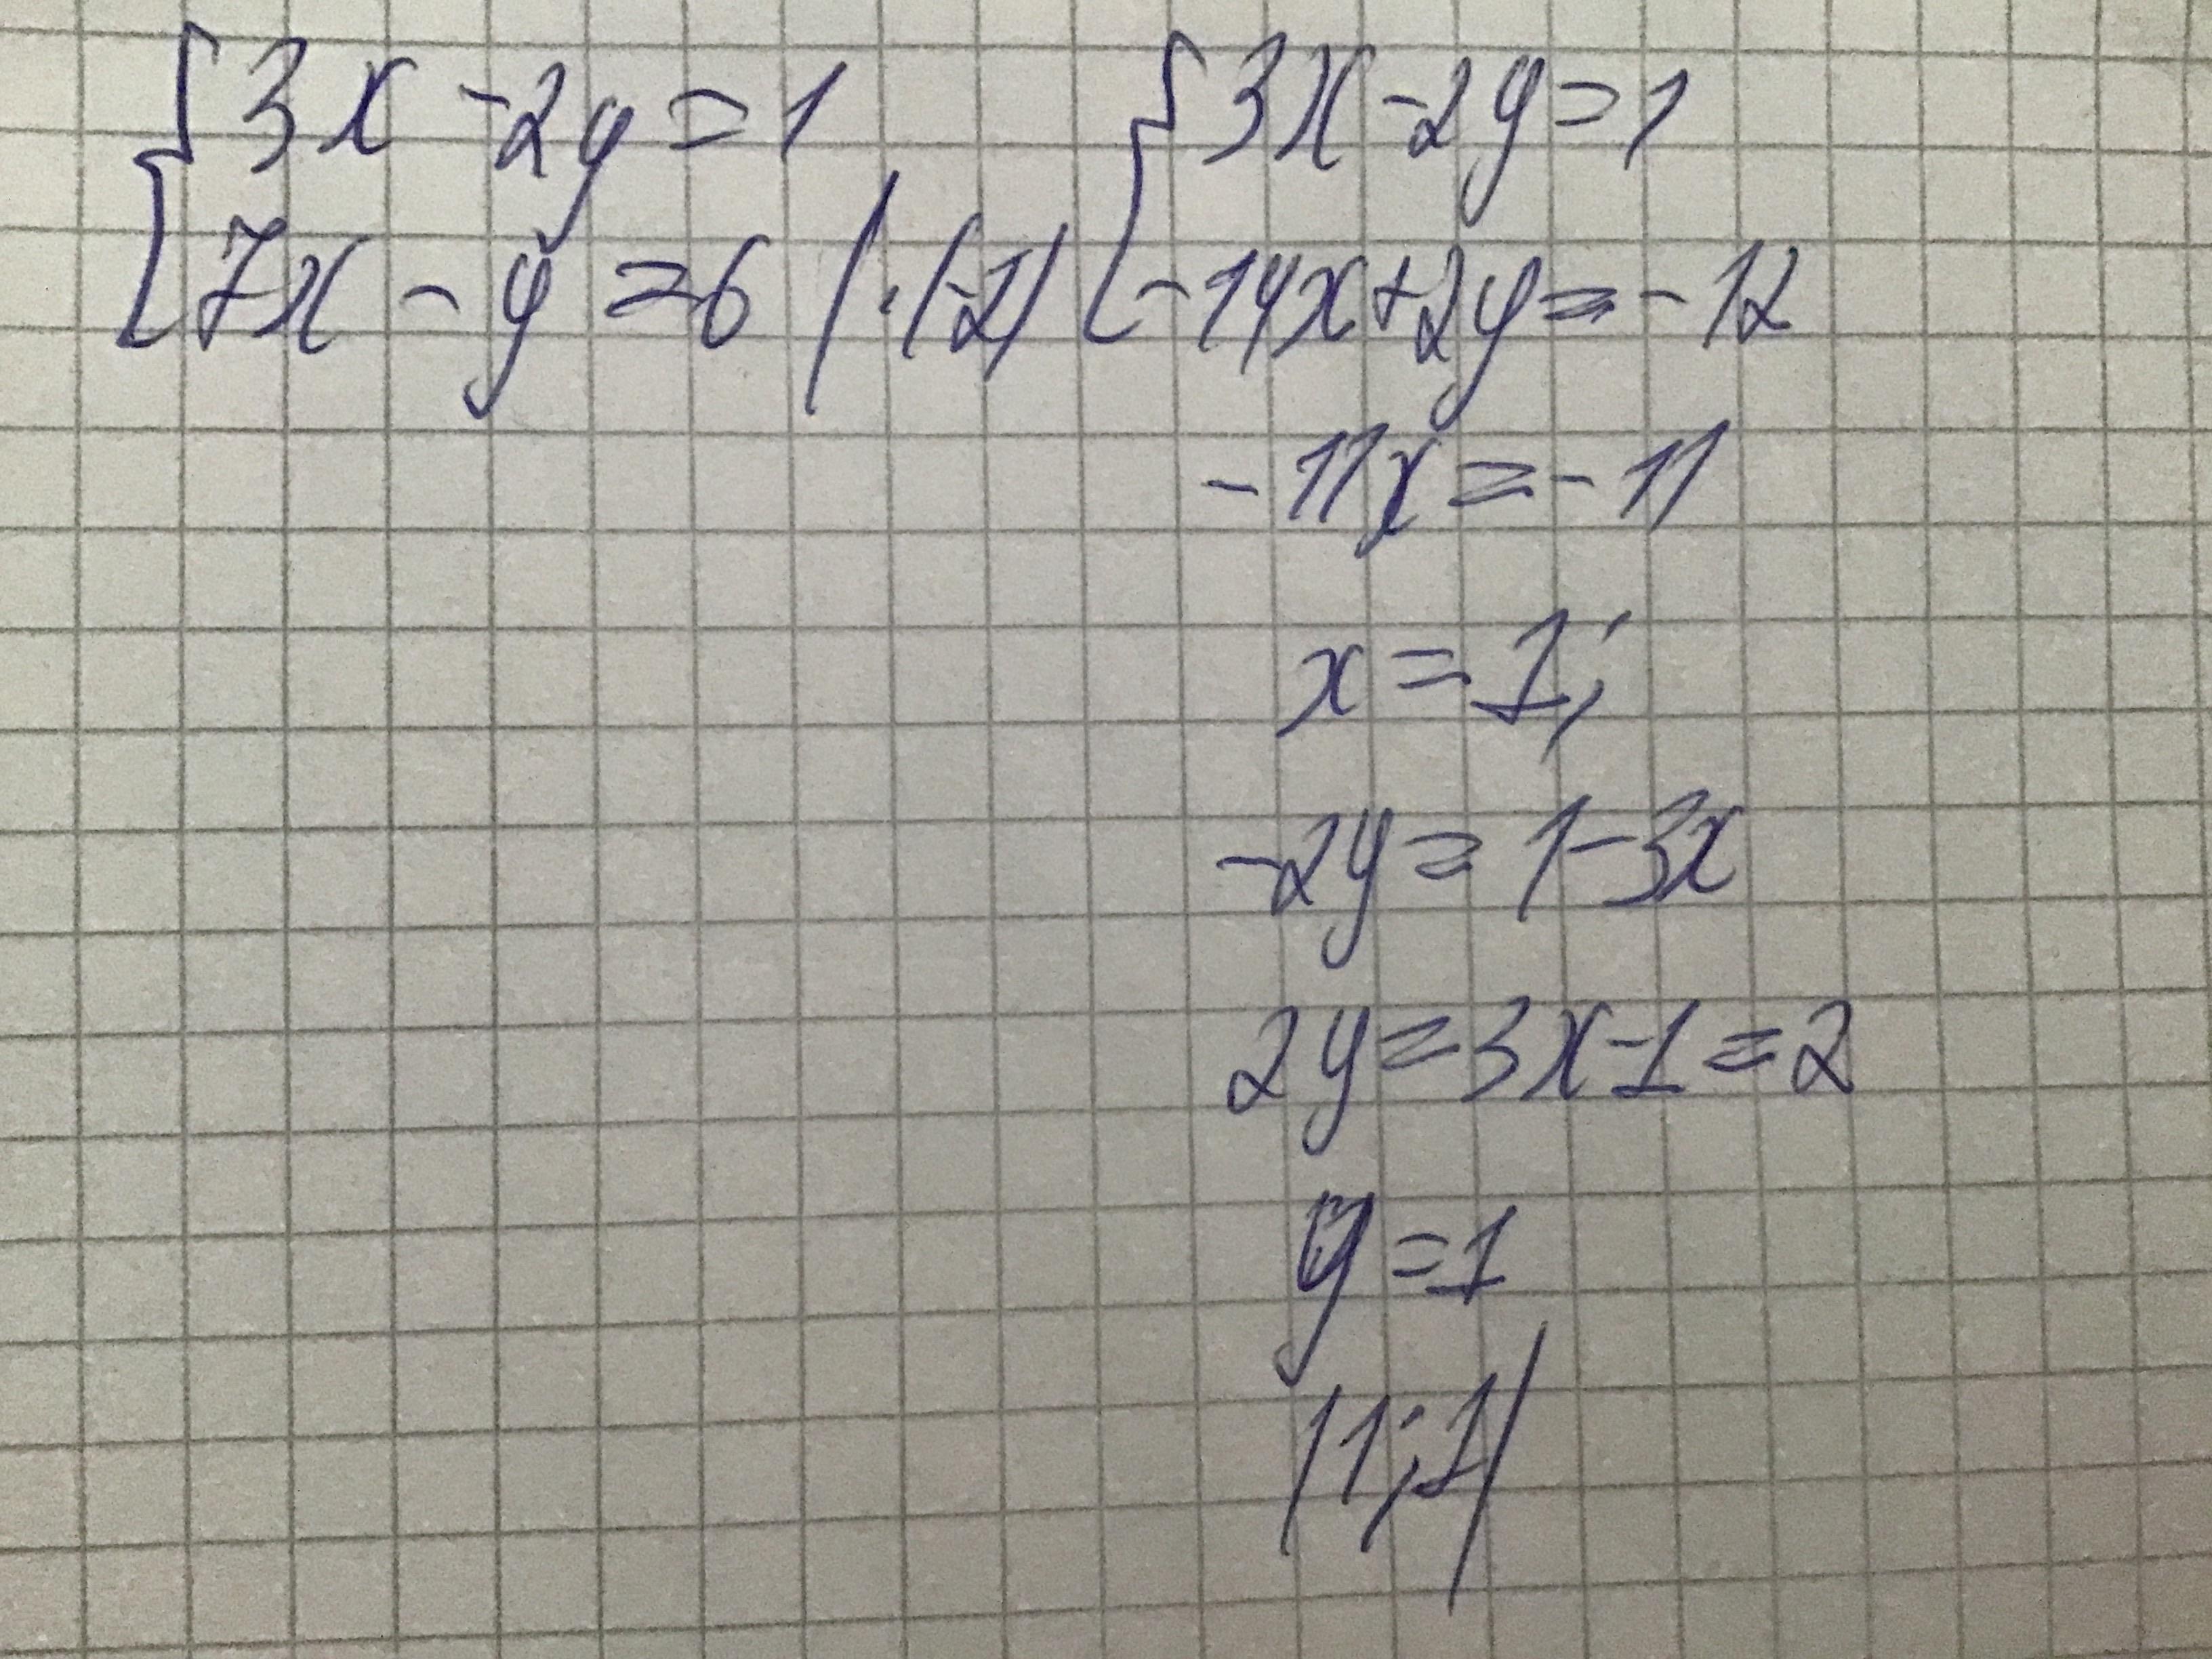 {3x - 2y = 1
7x - y = 6 | · (-2)
{3x - 2y = 1
-14x + 2y = -12
-11x = -11
x = 1;
-2y = 1 - 3x
2y = 3x - 1 = 2
y = 1
(1; 1)